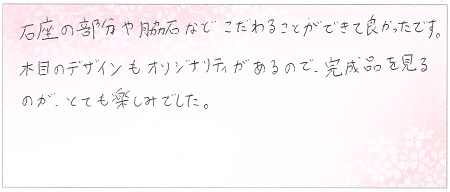 石座の部分や脇石など こだわることができて良かったです。
木目のデザインもオリジナリティがあるので、完成品を見る
のが、とても楽しみでした。